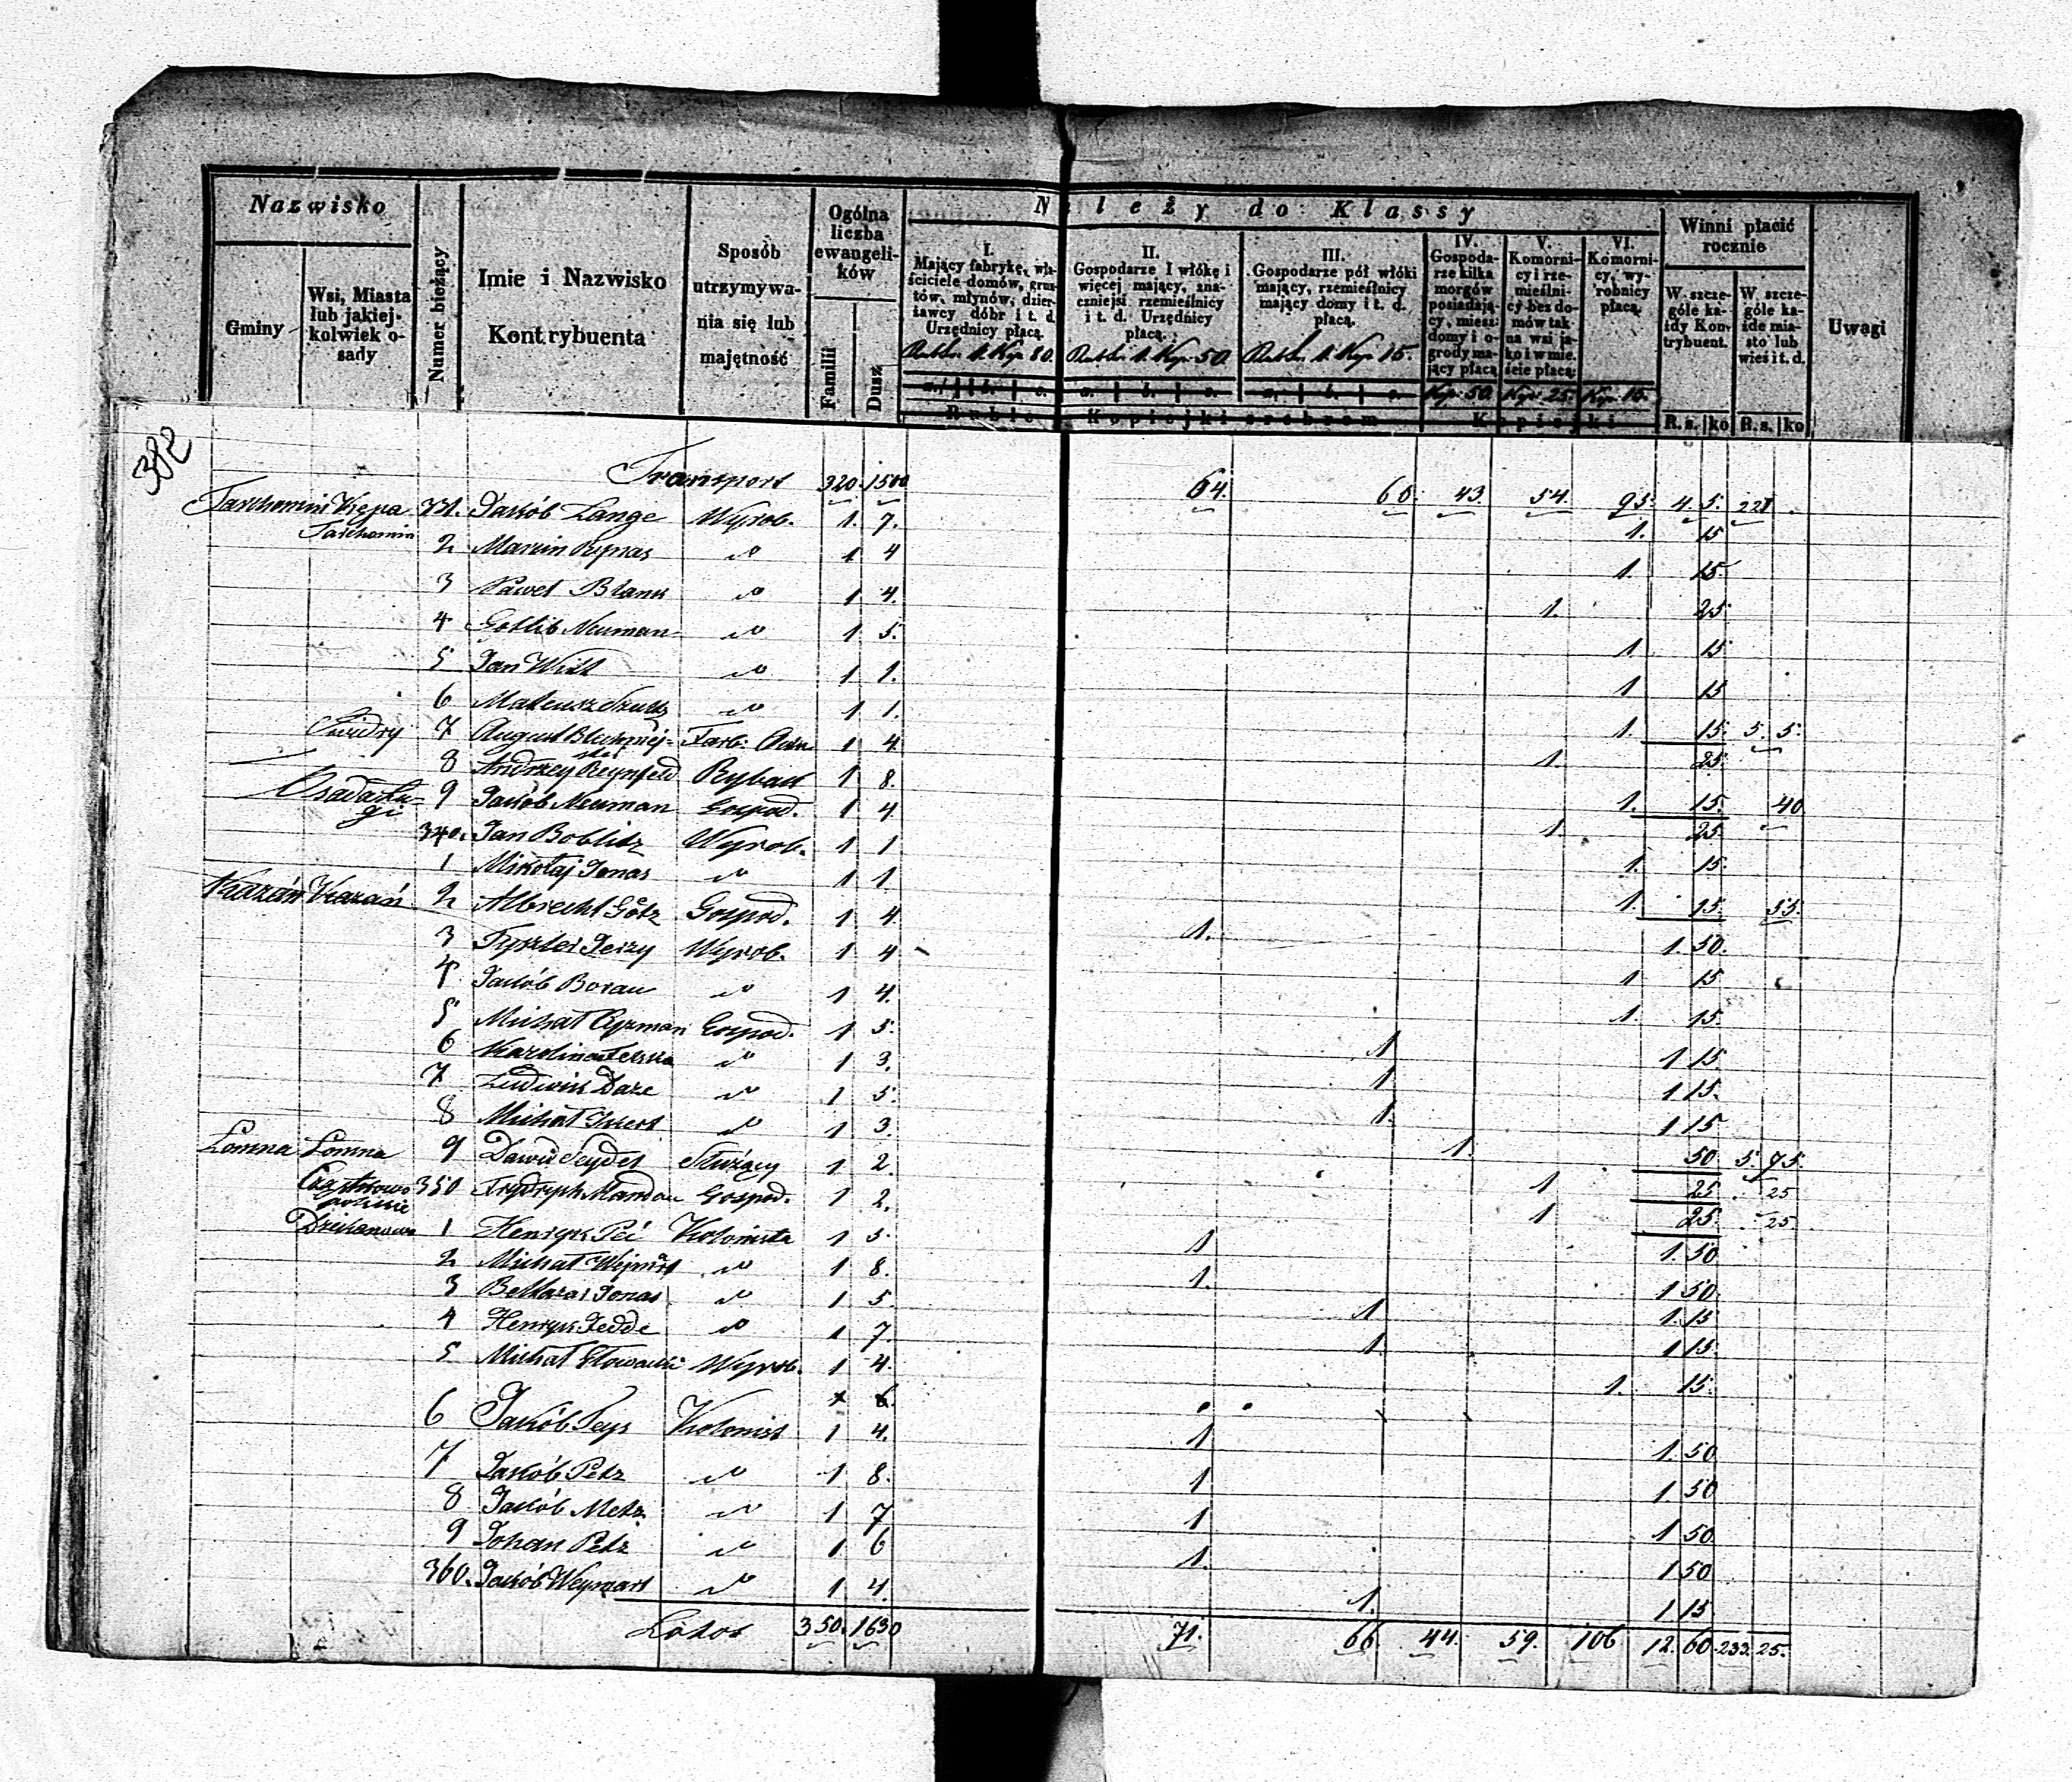 382
Nazwisko
Gminy
Wsi, Miasta lub jakiej-kolwiek o-sady
Numer bieżący
Imie i Nazwisko Kontrybuenta
Sposób utrzymywa-nia się lub majętność
Ogólna liczba ewangeli-ków
Familii
Dusz
Należy do Klassy
I. Mający fabrykę, wła-ściciele domów, grun-tów, młynów, dzier-żawcy dóbr i t. d. Urzędnicy płacą.
II. Gospodarze I włókę i więcej mający, zna-czniejsi rzemieślnicy i t. d. Urzędnicy płacą.
III. Gospodarze pół włóki mający, rzemieślnicy mający domy i t. d. płacą.
IV. Gospoda-rze kilka morgów posiadają-cy, miesz. domy i o-grody ma-jący płacą
V. Komorni-cy i rze-mieślni-cy bez do-mów tak na wsi ja-ko i w mie-ście płacą:
VI. Komorni-cy, wy-robnicy płacą.
Kop. 50. Kop. 25. Kop. 15.
a. b. c. a. b. c. a. b. c.
Ruble Kopiejki srebrem Kopiejki
Winni płacić rocznie
W szcze-góle ka-żdy Kon-trybuent.
W szcze-góle ka-żde mia-sto lub wieś i t. d.
R. s. ko R. s. ko
Uwagi
Transport 320. 1500 64. 66. 43. 54. 95. 4. 5. 221
Tarchomin Kępa Tarchomin 331. Jakób Lange Wyrob. 1. 7. 1. 15
2 Marcin 1 4 1. 15.
3 Paweł Blank 1 4. 1. 25
4 Gotlib Neuman 1 5. 1. 15
5 Jan Witt 1 1. 1 15
6 Mateusz Szultz 1 1. 1. 15. 5. 5.
Świdry 7 August 1 4 1. 25
8 Andrzey Reynfeld Rybak 1 8. 1. 15. 40
Osada Łu-gi 9 Jakób Neuman Gospod. 1 4. 1 25
340. Jan Boblitz Wyrob. 1 1 1. 15.
1 Mikołaj Jonas 1 1 1. 15. 55.
Kazań Kazań 2 Albrecht Götz Gospod. 1 4. 1. 1. 50.
3 Jerzy Wyrob. 1 4 1 15
4 Jakób Borau 1 4. 1. 15.
5 Michał Gospod. 1 5. 1 1 15
6 Karolina 1 3. 1 1 15.
7 Ludwik Daze 1 5. 1. 1 15
8 Michał 1 3. 1. 50 5. 95.
Łomna Łomna 9 Dawid Seydel Służący 1 2. 1 25 25
350 Frydrych Mandau Gospod. 1 2. 1 25. 25
Dziekanowo 1 Henryk Kolonista 1 5. 1 1. 50
2 Michał 1 8. 1. 1 50.
3 Baltazar Jonas 1 5. 1 1. 15
4 Henryk Jedde 1 7. 1. 1 15.
5 Michał Głowacki Wyrob. 1 4. 1. 15.
6 Jakób Kolonist 1 4. 1 1. 50
7 Jakób Petz 1 8. 1 1. 50
8 Jakób Metz 1 7 1 1 50.
9 Johan Petz 1 6 1. 1 50
360. Jakób Weynart 1 4. 1. 1 15
Latus 350. 1630 71. 66 44. 59. 106 12. 60. 233. 25.